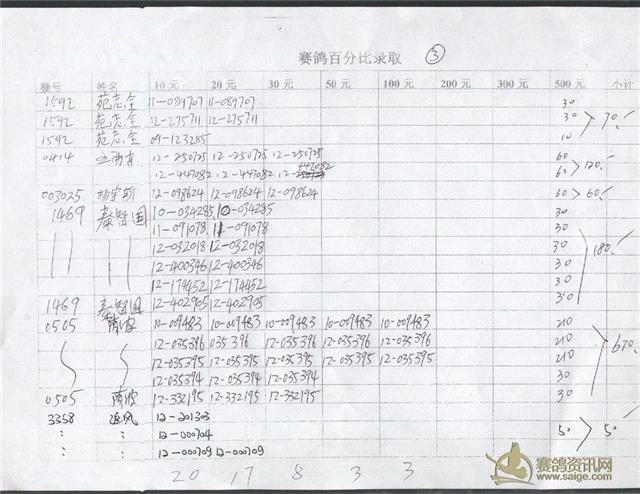 赛鸽百分比录取 ③
赛号 姓名 10元 20元 30元 50元 100元 200元 300元 500元 小计
1592 苑志全 11-089707 11-089707 30
1592 苑志全 12-275711 12-275711 30 70.
1592 苑志全 09-123285 10
0414 12-250725 12-250725 12-250725 60
12-447082 12-447082 12- 447082 60 120.
003025 12-098624 12-098624 12-098624 60 60.
1469 秦智国 10-034285 10-034285 30
11-091078 11-091078 30
12-032018 12-032018 30 180.
12-400346 12-400346 30
12-174452 12-174452 30
1469 秦智国 12-402905 12-402905 30
0505 10-009483 10-009483 10-009483 10-009483 10-009483 210
12-035396 035396 12-035396 12-035396 12-035396 210
12-035395 12-035395 12-035395 12-035395 12-035395 210 670.
12-035394 12-035394 12-035394 30
0505 12-332195 12-332195 12-332195 30
3358 追风 12-201303
: : 12-000704 50 50.
: : 12-000709 12-000709
20 17 8 3 3
赛鸽资讯网
www.saige.com